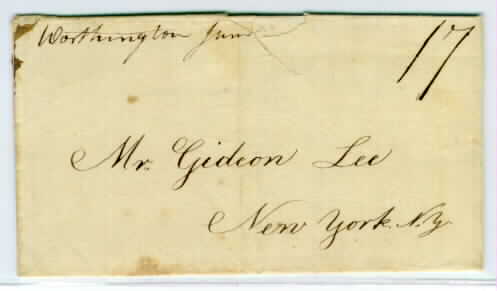 Worthington June 17
Mr. Gideon Lee
New York. N.Y.